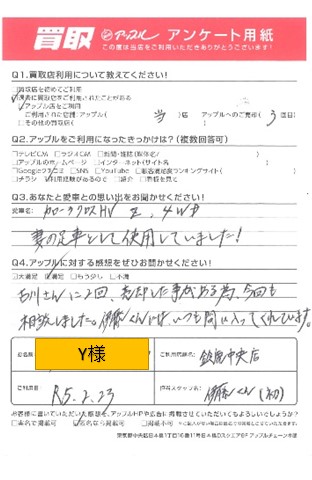 買取 アップル アンケート用紙
この度は当店をご利用いただきありがとうございます!
Q1.買取店利用について教えてください!
買取店を初めてご利用
過去に買取店をご利用されたことがある
アップル店をご利用
ご利用された店舗:アップル( 当 )店 アップルへのご売却( う 回目)
その他の買取店( )
Q2.アップルをご利用になったきっかけは?(複数回答可)
テレビCM ラジオCM 新聞・雑誌( )
アップルのホームページ インターネット(サイト名 )
Googleクチコミ SNS YouTube
チラシ 利用経験があるので 紹介 看板を見て
Q3.あなたと愛車との思い出をお聞かせください!
愛車名: カローラクロスHV Z. 4WD
妻の足車として使用していました!
Q4.アップルに対する感想をぜひお聞かせください!
大満足 満足 もう少し 不満
石川さんに2回、売却した事がある為、今回も
相談しました。伊藤くんには、いつも間に入ってくれています。
お名前 Y様 ご利用店舗名 鈴鹿中央店
ご利用日 R5.2.23 担当スタッフ名 伊藤くん(初)
お客様に書いていただいた感想を、アップルHPや広告に掲載させていただいてもよろしいでしょうか?
実名で掲載可 匿名なら掲載可 掲載不可